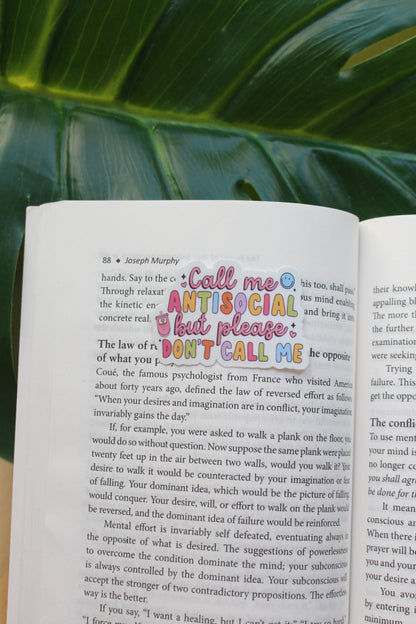 88 ◆ Joseph Murphy
hands. Say to the
Through relaxat
the kinetic en
concrete real
his too, shall pass."
ous mind enabling
and bring it into
Call me
ANTISOCIAL
but please
DON'T CALL ME
The law of r
of what you p
he opposite
Coué, the famous psychologist from France who visited America
about forty years ago, defined the law of reversed effort as follows
"When your desires and imagination are in conflict, your imagination
invariably gains the day."
If, for example, you were asked to walk a plank on the floor, you
would do so without question. Now suppose the same plank were placed
twenty feet up in the air between two walls, would you walk it? Your
desire to walk it would be counteracted by your imagination or fear
of falling. Your dominant idea, which would be the picture of falling,
would conquer. Your desire, will, or effort to walk on the plank would
be reversed, and the dominant idea of failure would be reinforced.
Mental effort is invariably self defeated, eventuating always in
the opposite of what is desired. The suggestions of powerlessness
to overcome the condition dominate the mind; your subconscious
is always controlled by the dominant idea. Your subconscious will
accept the stronger of two contradictory propositions. The effortless
way is the better.
If you say, "I want a healing, but I can't get it," "I try so hard"
their know
appalling b
The more t
the further
examination
were missed
Trying
failure. This
get the oppo
The confli
To use ment
your mind is
no longer co
you shall agre
be done for th
It mean
conscious an
When there i
prayer will be
you and your
your desire a
You avo
by entering i
minimum